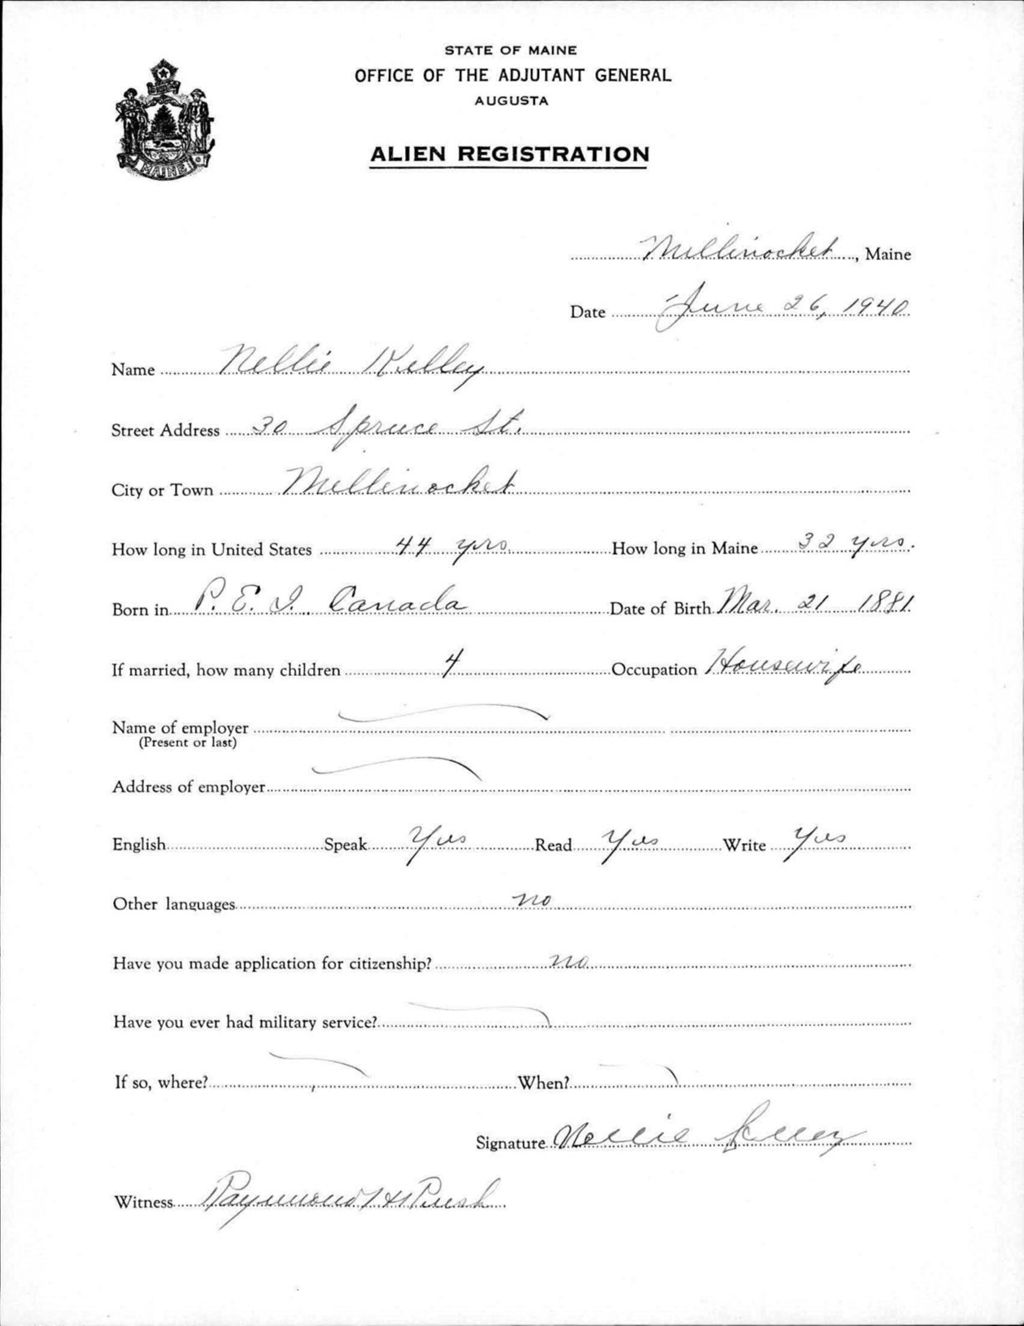 STATE OF MAINE
OFFICE OF THE ADJUTANT GENERAL
AUGUSTA
ALIEN REGISTRATION
MAINE
Millinocket, Maine
Date June 26, 1940
Name Nellie Kelley
Street Address 30 Spruce St.
City or Town Millinocket
How long in United States 44 yrs. How long in Maine 32 yrs.
Born in P. E. I., Canada Date of Birth Mar. 21 1881
If married, how many children 4 Occupation Housewife
Name of employer
(Present or last)
Address of employer
English Speak Yes Read Yes Write Yes
Other languages no
Have you made application for citizenship? no
Have you ever had military service?
If so, where? When?
Signature Nellie Kelley
Witness Raymond H Rush